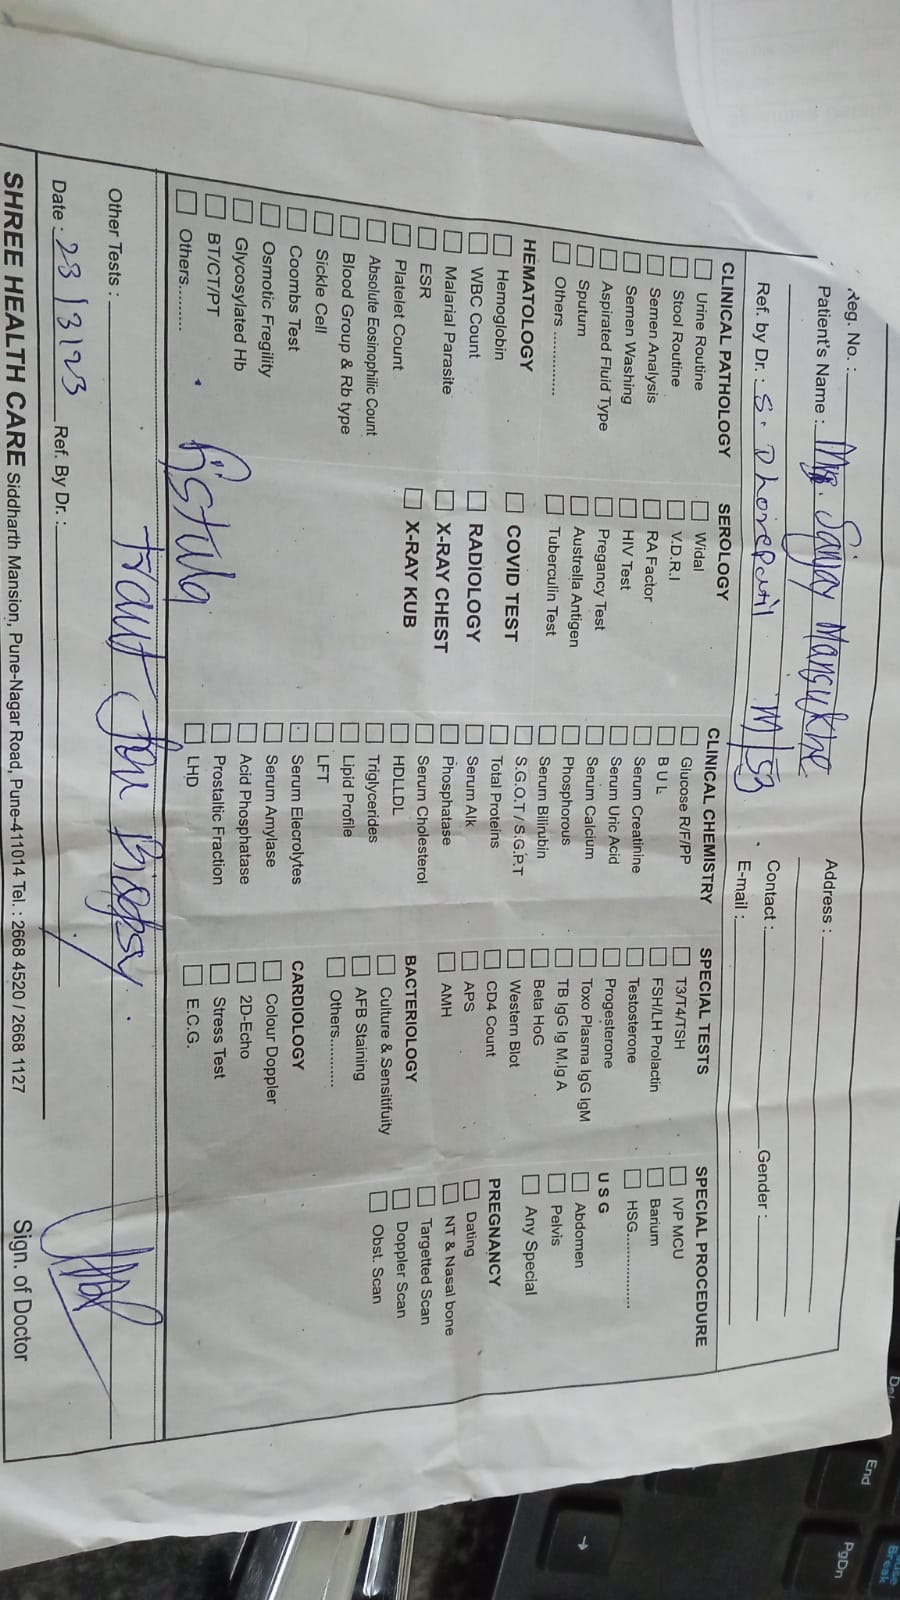 Reg. No. :
Patient's Name : Mr. Sanjay Mansukhe
Address :
Ref. by Dr. : S. Dhorepatil M/53
Contact :
Gender :
E-mail :
CLINICAL PATHOLOGY
Urine Routine
Stool Routine
Semen Analysis
Semen Washing
Aspirated Fluid Type
Sputum
Others ..............
HEMATOLOGY
Hemoglobin
WBC Count
Malarial Parasite
ESR
Platelet Count
Absolute Eosinophilic Count
Blood Group & Rb type
Sickle Cell
Coombs Test
Osmotic Fregility
Glycosylated Hb
BT/CT/PT
Others.........
SEROLOGY
Widal
V.D.R.I
RA Factor
HIV Test
Pregancy Test
Austrella Antigen
Tuberculin Test
COVID TEST
RADIOLOGY
X-RAY CHEST
X-RAY KUB
CLINICAL CHEMISTRY
Glucose R/F/PP
B U L
Serum Creatinine
Serum Uric Acid
Serum Calcium
Phosphorous
Serum Bilirubin
S.G.O.T / S.G.P.T
Total Proteins
Serum Alk
Phosphatase
Serum Cholesterol
HDLLDL
Triglycerides
Lipid Profile
LFT
Serum Elecrolytes
Serum Amylase
Acid Phosphatase
Prostaltic Fraction
LHD
SPECIAL TESTS
T3/T4/TSH
FSH/LH Prolactin
Testosterone
Progesterone
Toxo Plasma IgG IgM
TB IgG Ig M,Ig A
Beta HoG
Western Blot
CD4 Count
APS
AMH
BACTERIOLOGY
Culture & Sensitifuity
AFB Staining
Others...........
CARDIOLOGY
Colour Doppler
2D-Echo
Stress Test
E.C.G.
SPECIAL PROCEDURE
IVP MCU
Barium
HSG................
U S G
Abdomen
Pelvis
Any Special
PREGNANCY
Dating
NT & Nasal bone
Targetted Scan
Doppler Scan
Obst. Scan
Fistula
Other Tests : tract for Biopsy.
Date : 23/3/23 Ref. By Dr. :
SHREE HEALTH CARE Siddharth Mansion, Pune-Nagar Road, Pune-411014 Tel. : 2668 4520 / 2668 1127
Sign. of Doctor
End
PgDn
Break